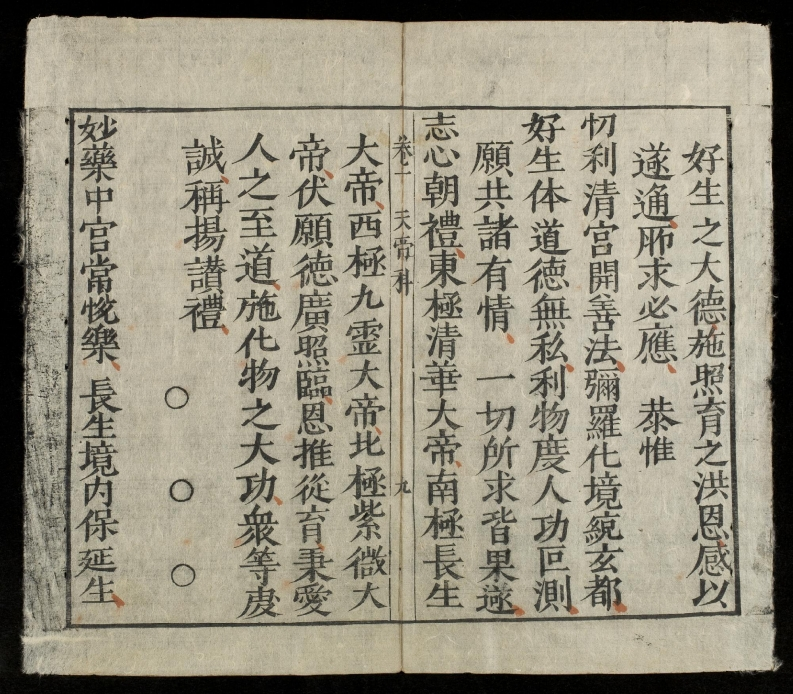 好生之大德、施照育之洪恩、感以
遂通、所求必應、 恭惟
忉利清宮開善法、彌羅化境統玄都、
好生体道德無私、利物度人功叵測、
願共諸有情、 一切所求皆果遂、
志心朝禮、東極清華大帝、南極長生
卷一 天帝科 九
大帝、西極九霊大帝、北極紫微大
帝、伏願德廣照臨、恩推從育、秉愛
人之至道、施化物之大功、衆等虔
誠、稱揚讃禮、
○ ○ ○
妙藥中宮當悅樂、 長生境内保延生、